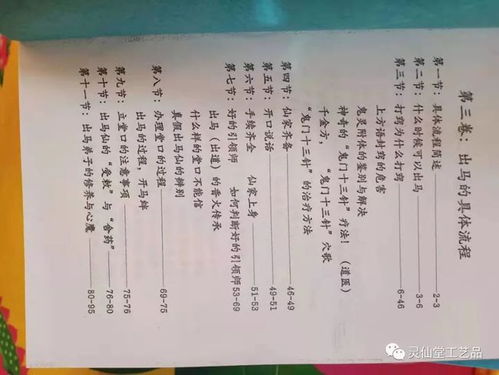 第三卷：出马的具体流程
第一节：具体流程简述————2-3
第二节：什么时候可以出马————3-6
第三节：打窍为什么打窍————6-46
上方语封窍的危害
鬼灵附体的鉴别与解决
神奇的“鬼门十三针”疗法！（道医）
千金方，“鬼门十三针”穴歌
“鬼门十三针”的治疗方法
第四节：仙家齐备————46-49
第五节：开口说话————49-51
第六节：手续齐全 仙家上身————51-53
第七节：好的引领师 如何判断好的引领师53-69
出马（出道）的香火传承
什么样的堂口不能信
真假出马仙的辨别
第八节：办理堂口的过程————69-75
出马的过程，开马绊
第九节：立堂口的注意事项————75-76
第十节：出马仙的“受救”与“舍药”————76-80
第十一节：出马弟子的修养与心魔————80-95
灵仙堂工艺品